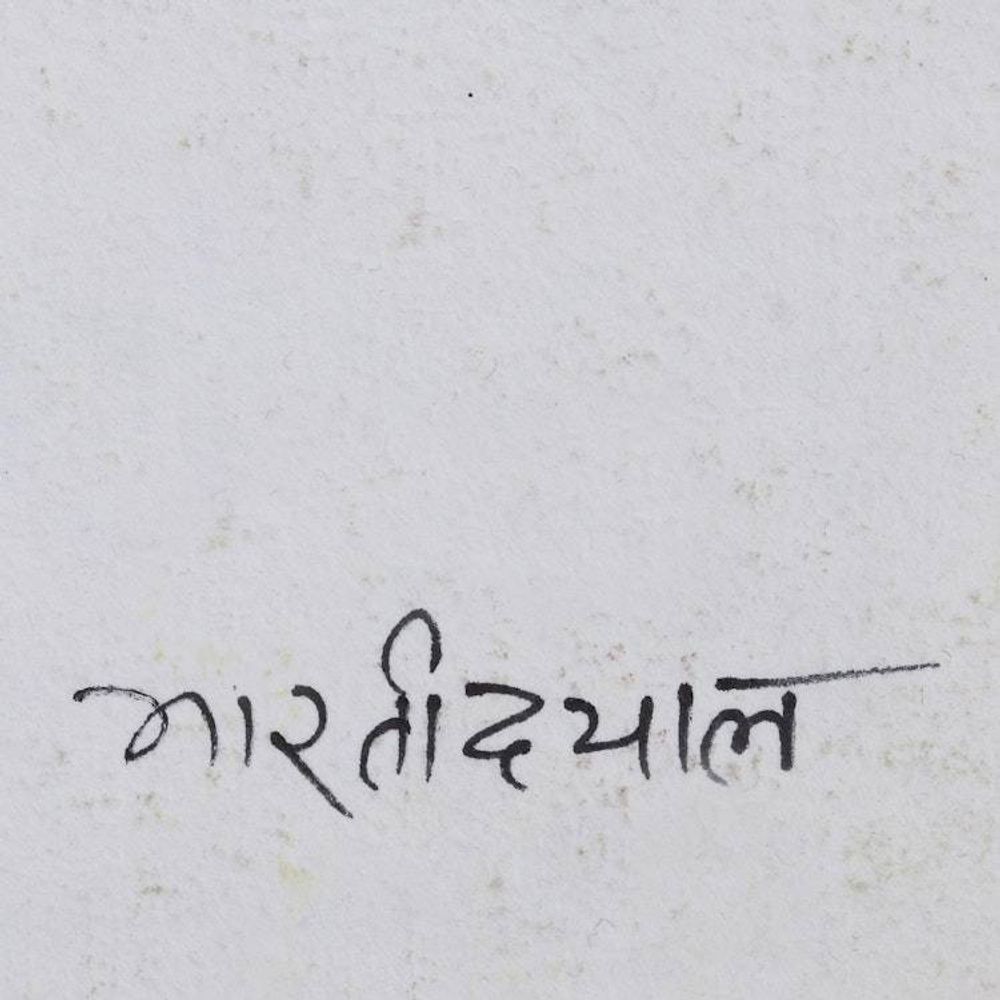 भारती दयाल